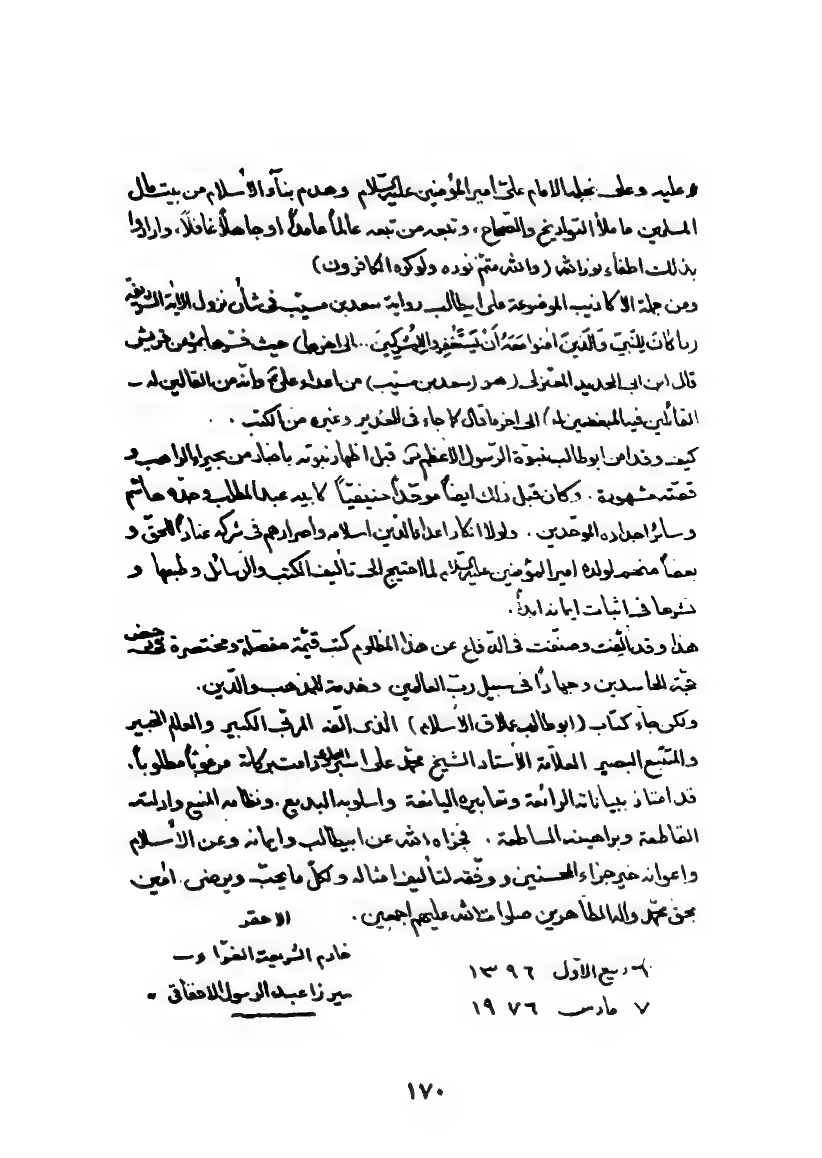 عليه وعلى نجله الامام علىّ امير المؤمنين عليه السّلام وهدم بنآء الأسلام من بيت مال
المسلمين ما ملأ التواريخ والصّحاح، وتبعه من تبعه عالماً عامداً او جاهلاً غافلاً، وارادوا
بذلك اطفاء نور الله (والله متمّ نوره ولو كره الكافرون)
ومن جملة الاكاذيب الموضوعة على ابيطالب رواية سعد بن مسيّب فى شأن نزول الآية الشريفة
(ما كانَ لِلنَّبىّ وَالَّذينَ امنوا مَعَهُ اَنْ يَسْتَغْفِروا لِلْمُشْرِكينَ... الى اخرها) حيث فسّرها بمؤمن قريش
قال ابن ابى الحديد المعتزلى (هو (سعد بن مسيّب) من اعداء علىّ ع وانّه من القالين له -
القائلين فيه المبغضين له) الى اخر ما قال كما جاء فى الغدير وغيره من الكتب . .
كيف وقد امن ابوطالب بنبوّة الرّسول الأعظم ص قبل اظهار نبوّته بأخبار من بحيراء الراهب و
قصّته مشهورة . وكان قبل ذلك ايضاً موحّداً حنيفيّاً كابيه عبد المطلب وجدّه هاشم
وسائر اجداده الموحّدين . ولولا انكار اعداء الدّين اسلامه واصرارهم فى شركه عناداً للحقّ و
بغضاً منهم لولده امير المؤمنين عليه السّلام لما احتيج الى تأليف الكتب والرّسائل وطبعها و
نشرها فى اثبات ايمانه ابداً .
هذا وقد الّفت وصنّفت فى الدّفاع عن هذا المظلوم كتب قيّمة مفصّلة ومختصرة
حجّة الحاسدين وجهاداً فى سبيل ربّ العالمين وخدمة للمذهب والدّين.
ولكن جاء كتاب (ابوطالب عملاق الأسلام) الّذى الّفه المربّى الكبير والعالم الخبير
والمتتبّع البصير العلّامة الأستاد الشيخ محمّد على اسبر دامت بركاته مرغوباً مطلوباً.
قد امتاز ببياناته الرائعة وتعابيره اليانعة واسلوبه البديع. ونظامه المنيع وادلّته
القاطعة وبراهينه الساطعة . فجزاه الله عن ابيطالب وايمانه وعن الأسلام
واعوانه خير جزاء المحسنين ووفّقه لتأليف امثاله ولكلّ ما يحبّ ويرضى. امين
بحقّ محمّد واله الطّاهرين صلوات الله عليهم اجمعين.
الاحقر
خادم الشريعة الغرّاء -
ميرزا عبد الرسول الاحقاقى
٦ ربيع الاّول ١٣٩٦
٧ مارس ١٩٧٦
١٧٠